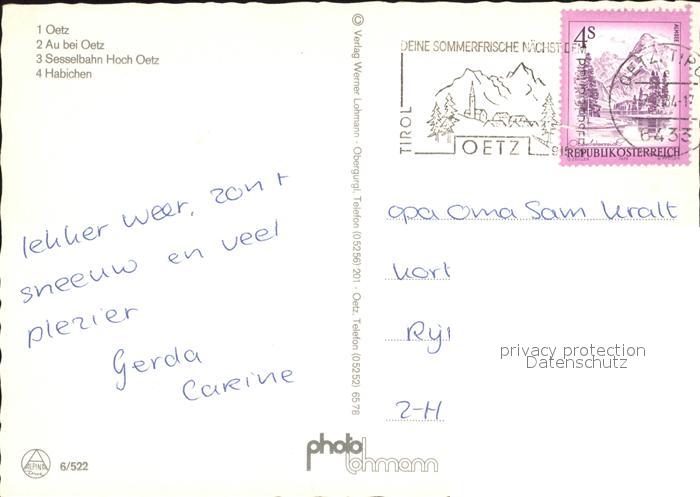 1 Oetz
2 Au bei Oetz
3 Sesselbahn Hoch Oetz
4 Habichen
lekker weer, zon +
sneeuw en veel
plezier
Gerda
Carine
ALPINA
6/522
© Verlag Werner Lohmann · Obergurgl, Telefon (05256) 201 · Oetz, Telefon (05252) 6578
photo
lohmann
DEINE SOMMERFRISCHE NÄCHST DEM
TIROL
OETZ
4S
ALMSEE
REPUBLIK ÖSTERREICH
OETZ, TIROL
6433
opa oma Sam Kralt
Kort
Rijl
2-H
privacy protection
Datenschutz